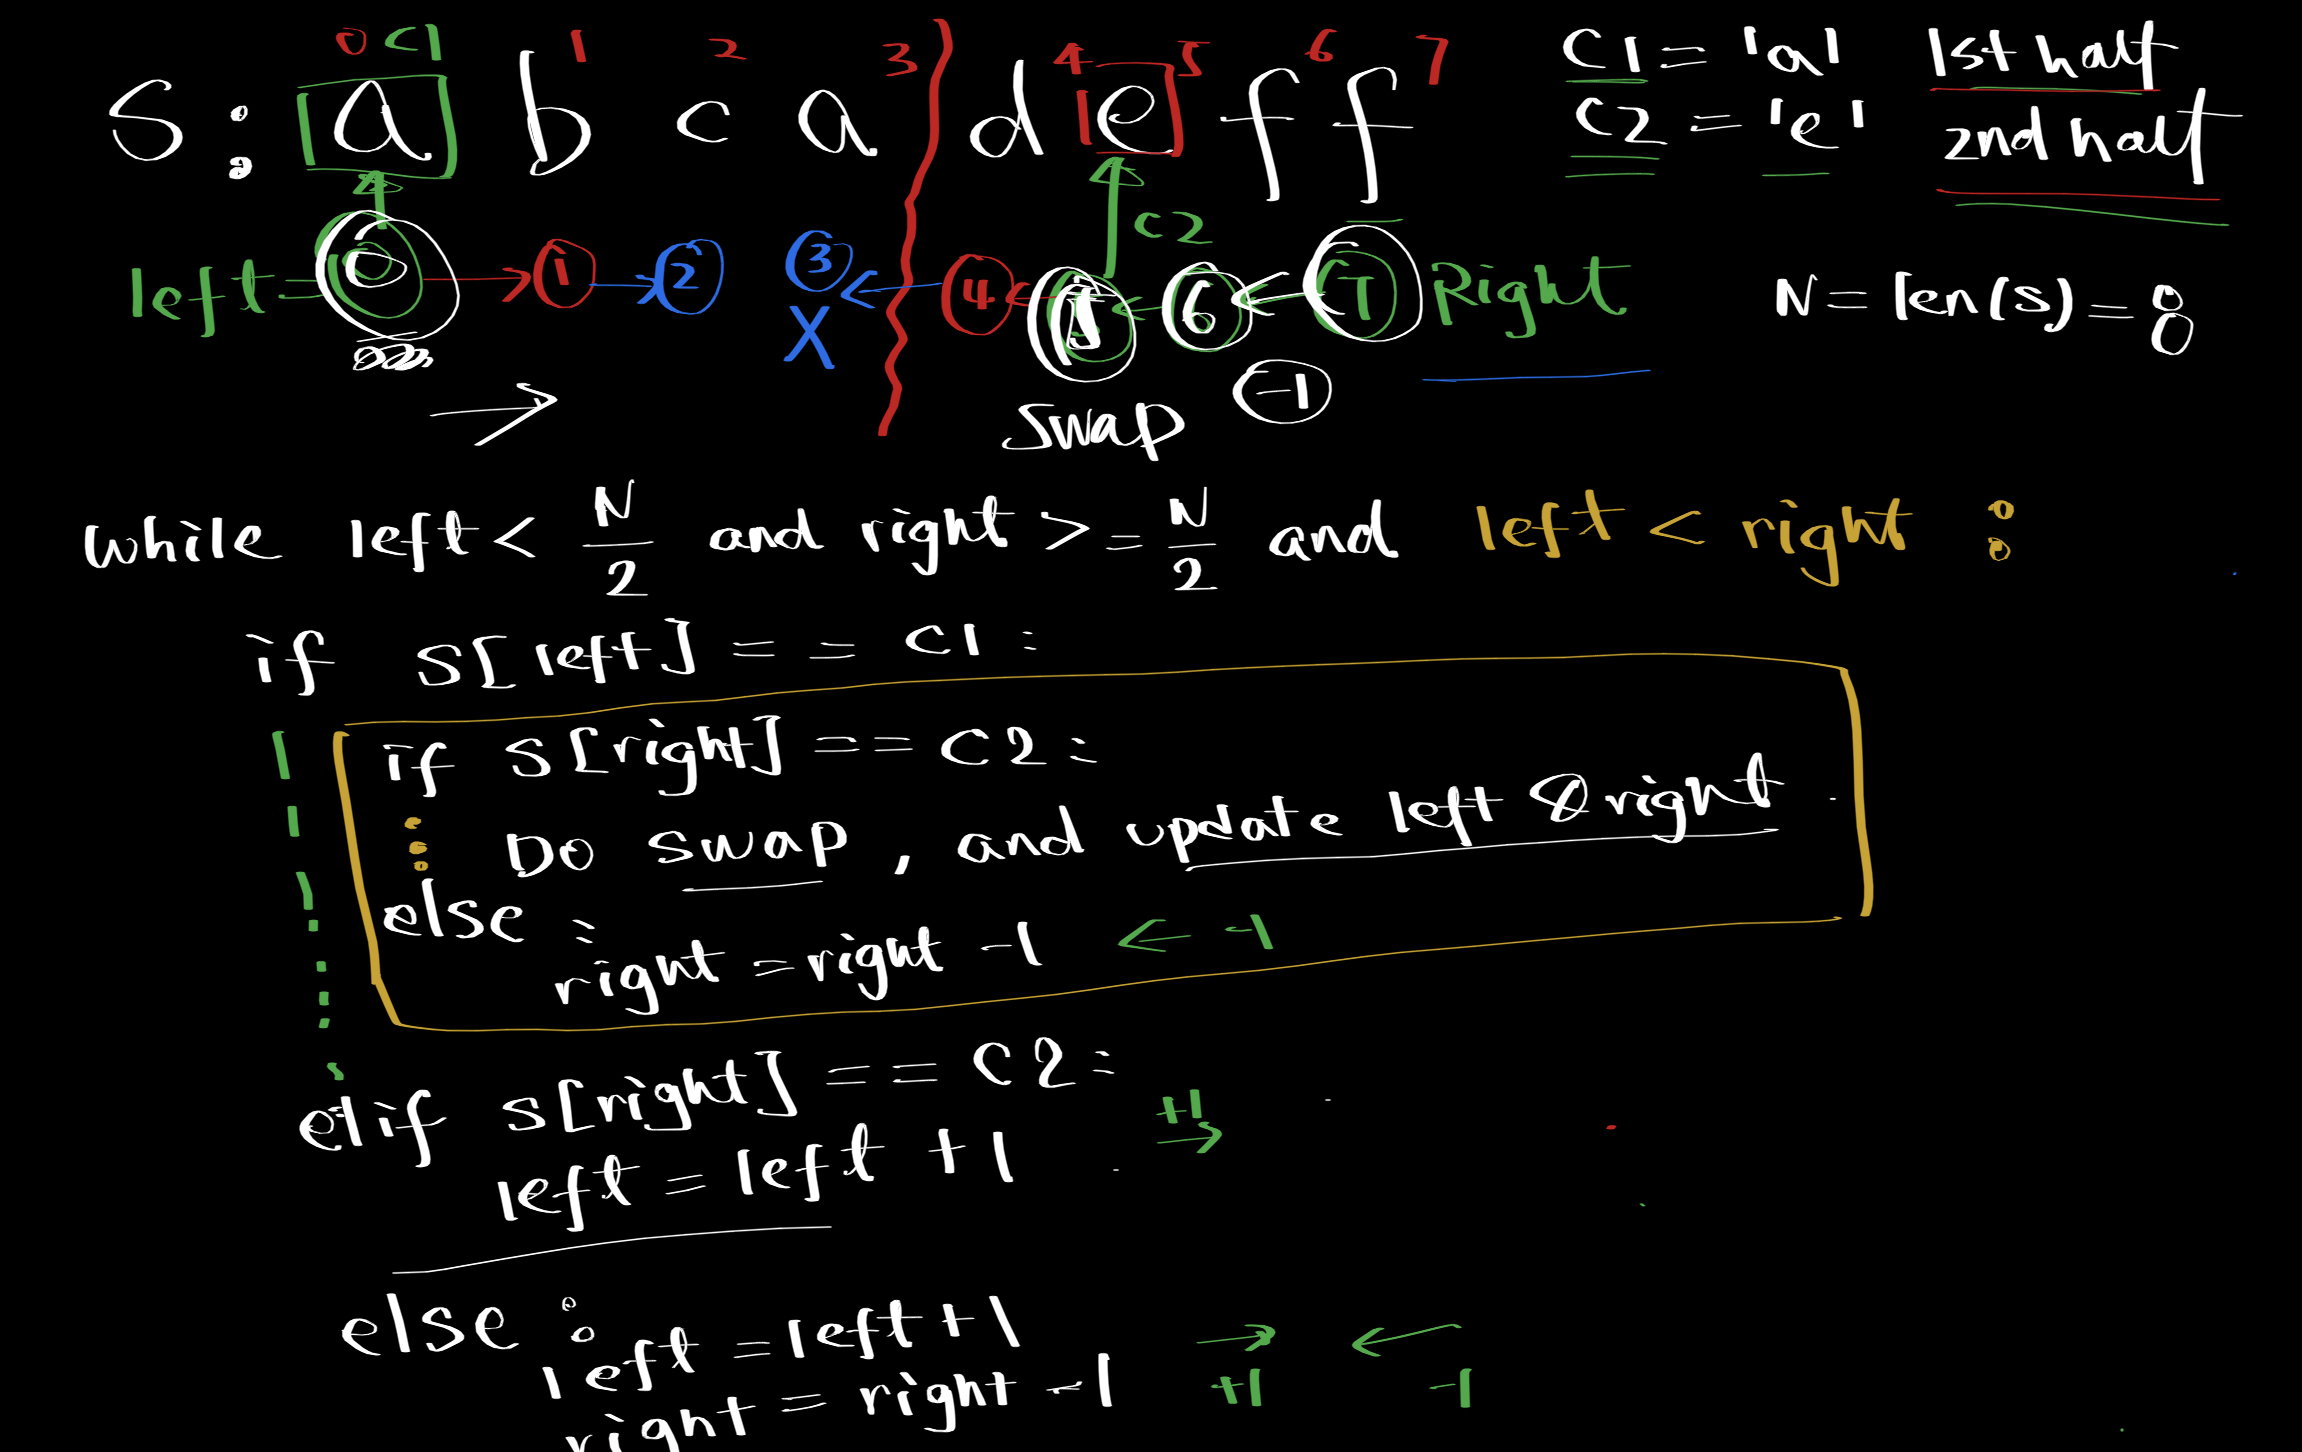 0 C1 1 2 3 4 5 6 7
S : [a] b c a d [e] f f
C1 = 'a' 1st half
C2 = 'e' 2nd half
C2
left 0 1 2 3 4 5 6 7 Right
X
-1
swap
N = len(s) = 8
while left < N/2 and right >= N/2 and left < right :
if S[left] == C1 :
if S[right] == C2 :
Do swap, and update left & right
else :
right = right - 1 ← -1
elif S[right] == C2 :
left = left + 1 +1 →
else :
left = left + 1 → ←
right = right - 1 +1 -1